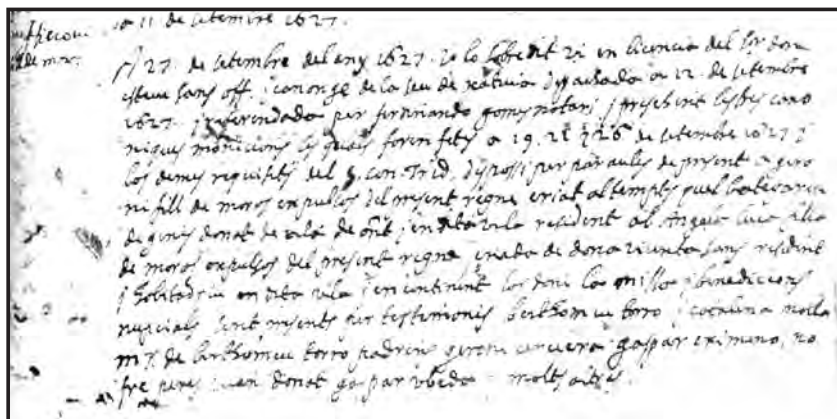 a 11 de setembre 1627.
A 27. de setembre del any 1627. Yo lo sobredit Vi en licencia del Sor don
esteve sans off. canonge de la seu de Xativa dspachada a 22. de setembre
1627. referendada per ferninando gomes notari y presehint les tres cano
niques monicions les quals foren fetes a 19. 21 y 26 de setembre 1627 y
los demes requisits del S. con. Trid. desposi per paraules de present a gero
ni fill de moros expulsos del present regne criat al temps quel batearen
de ginis donat de vila de ont y en dita vila resident ab Angela Lucia filla
de moros expulsos del present regne criada de dona vicenta sans resident
y habitadriu en dita vila y en continent los doni la missa y benediccions
nupcials sent presents per testimonis berthomeu torro y catalina molla
m r. de berthomeu torro padrins geroni cervera gaspar eximeno, no
fre peres juan donat gaspar ubeda y molts altres.